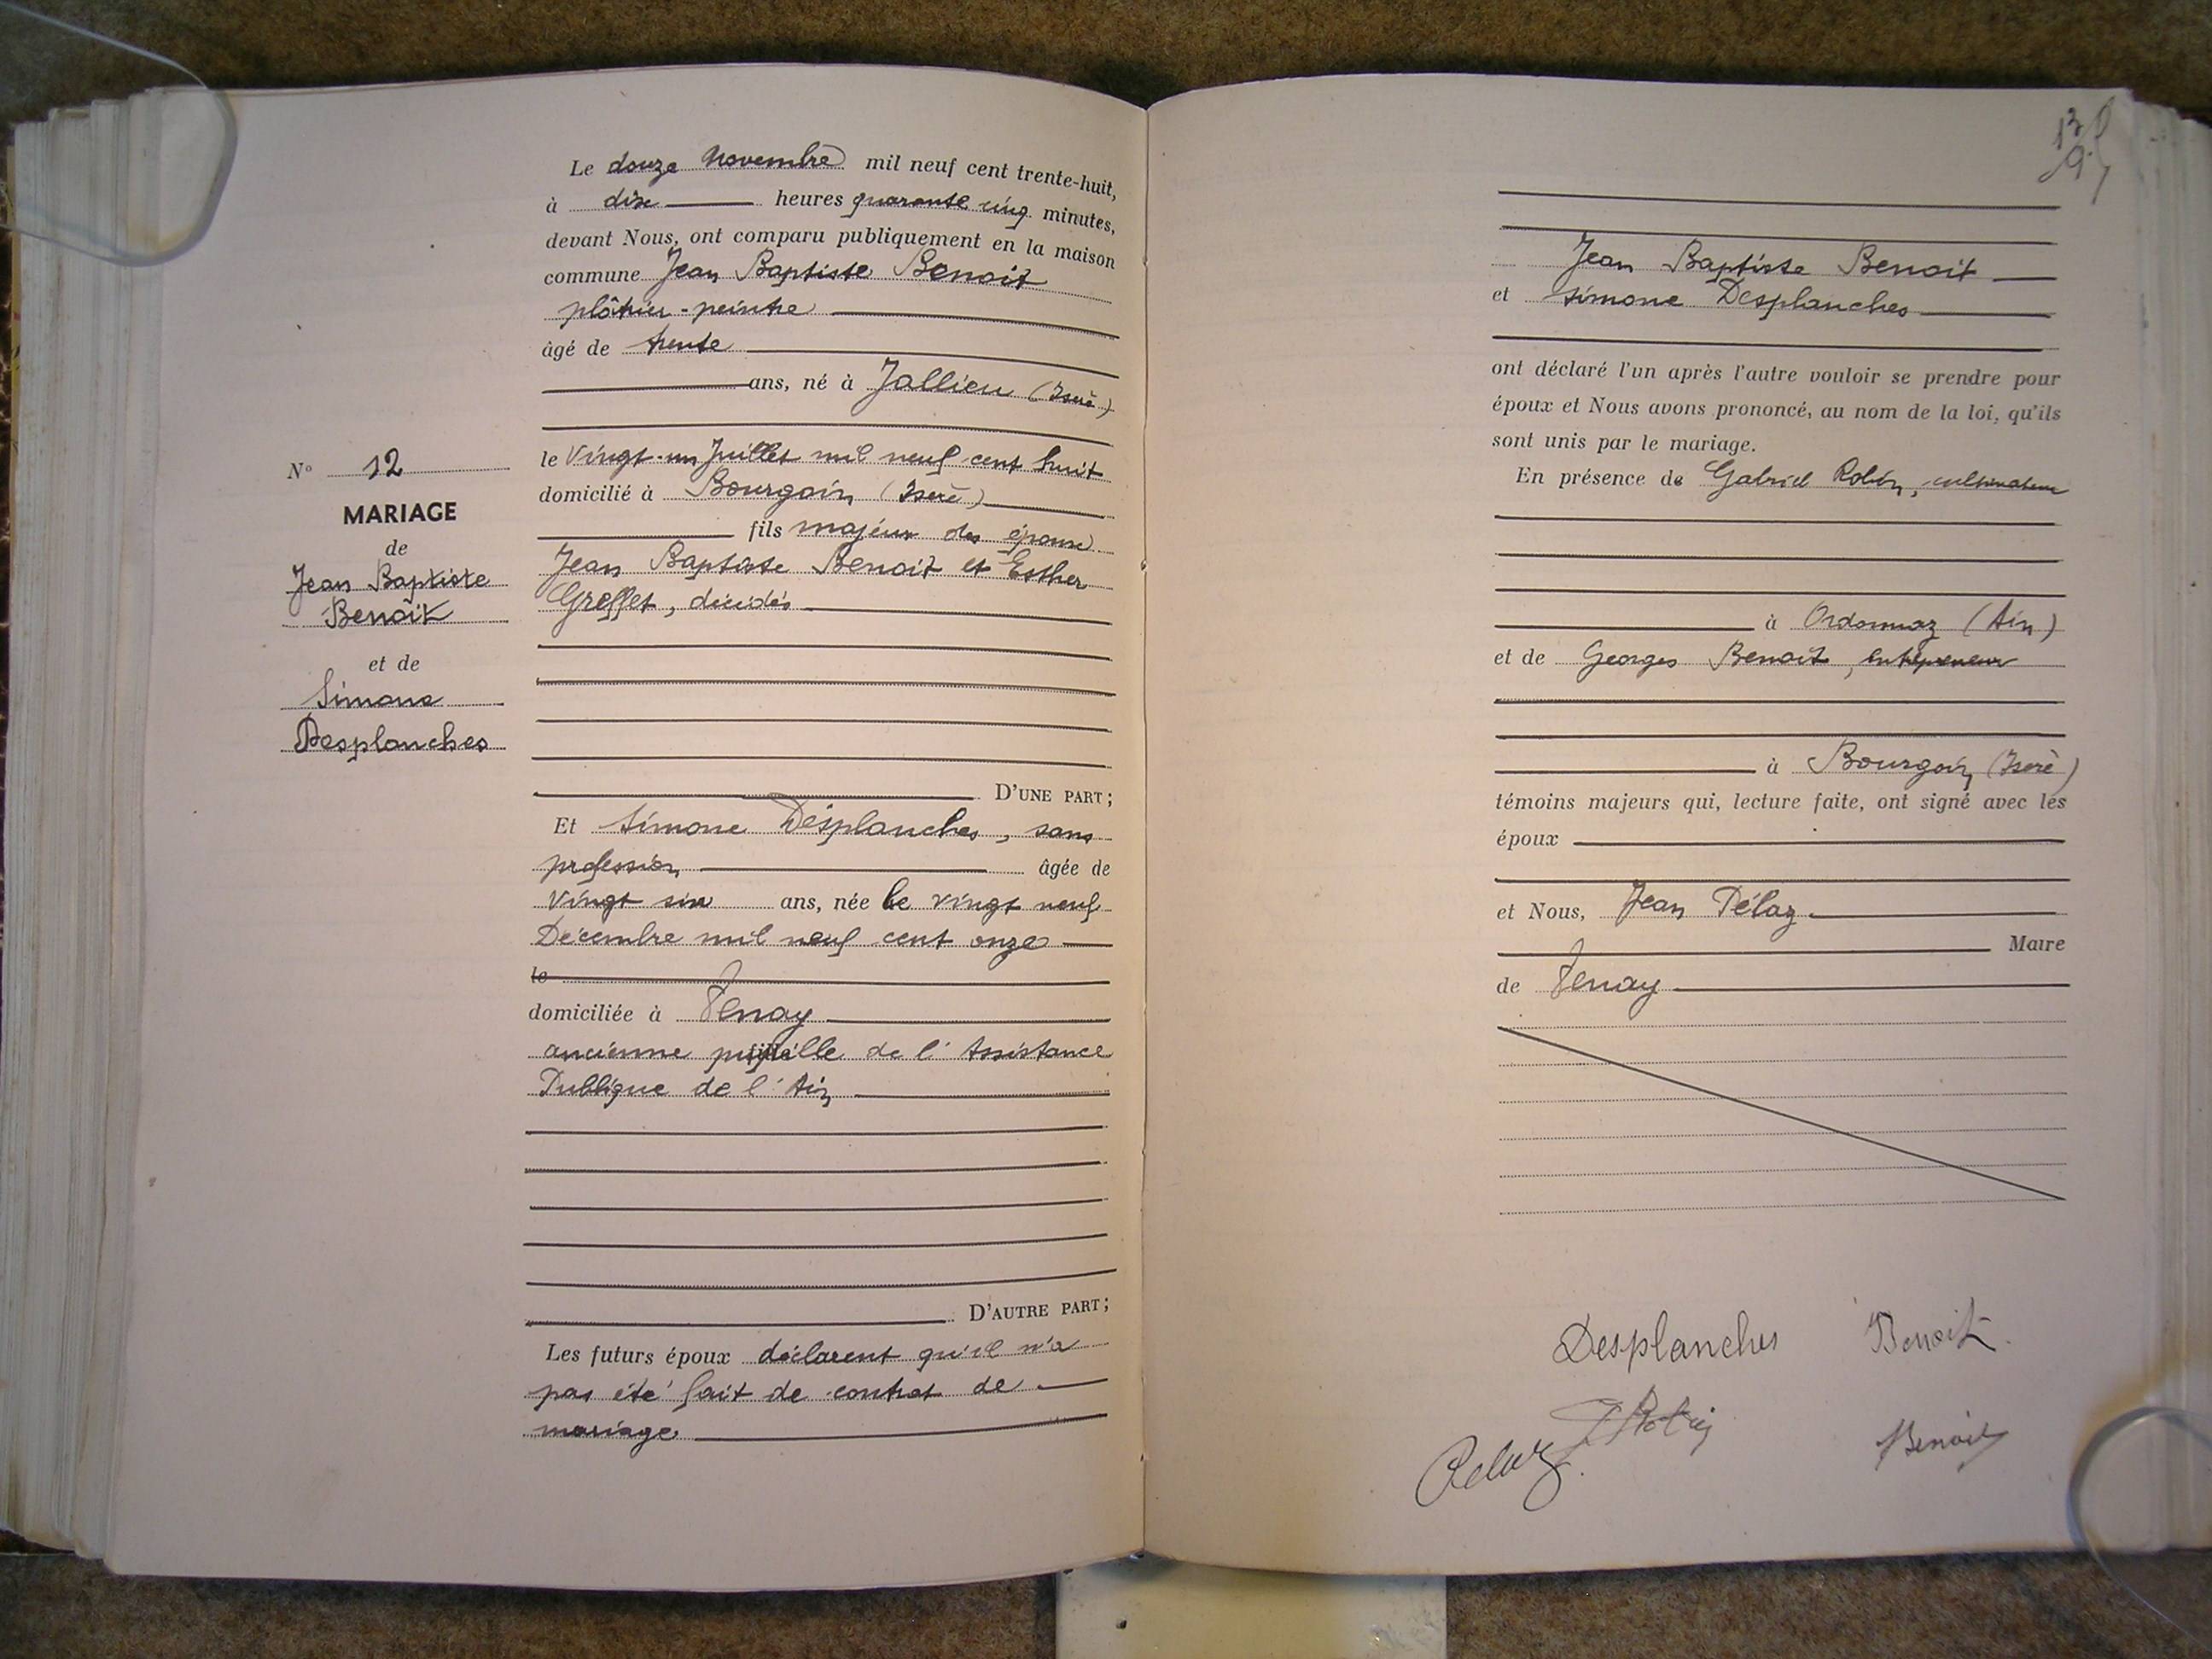 Le douze Novembre mil neuf cent trente-huit,
à dix heures quarante cinq minutes,
devant Nous, ont comparu publiquement en la maison
commune Jean Baptiste Benoit
plâtrier-peintre
âgé de trente
ans, né à Jallieu (Isère)
le vingt-un Juillet mil neuf cent huit
domicilié à Bourgoin (Isère)
fils majeur des époux
Jean Baptiste Benoit et Esther
Greffet, décédés
D'UNE PART;
N° 12
MARIAGE
de
Jean Baptiste
Benoit
et de
Simone
Desplanches
Et Simone Desplanches, sans
profession âgée de
vingt six ans, née le vingt neuf
Décembre mil neuf cent onze
le
domiciliée à Tenay
ancienne pupille de l'Assistance
Publique de l'Ain
D'AUTRE PART;
Les futurs époux déclarent qu'il n'a
pas été fait de contrat de
mariage
Jean Baptiste Benoit
et Simone Desplanches
ont déclaré l'un après l'autre vouloir se prendre pour
époux et Nous avons prononcé, au nom de la loi, qu'ils
sont unis par le mariage.
En présence de Gabriel Robin, cultivateur
à Ordonnaz (Ain)
et de Georges Benoit, entrepreneur
à Bourgoin (Isère)
témoins majeurs qui, lecture faite, ont signé avec les
époux
et Nous, Jean Pélaz
Maire
de Tenay
Desplanches Benoit
Robin Benoit